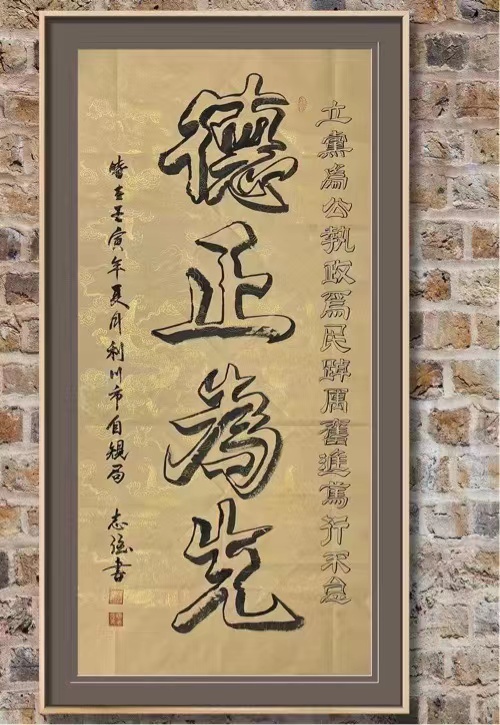 立黨為公執政爲民踔厲奮進篤行不怠
德正為先
時在壬寅年夏月利川市自規局 志強書